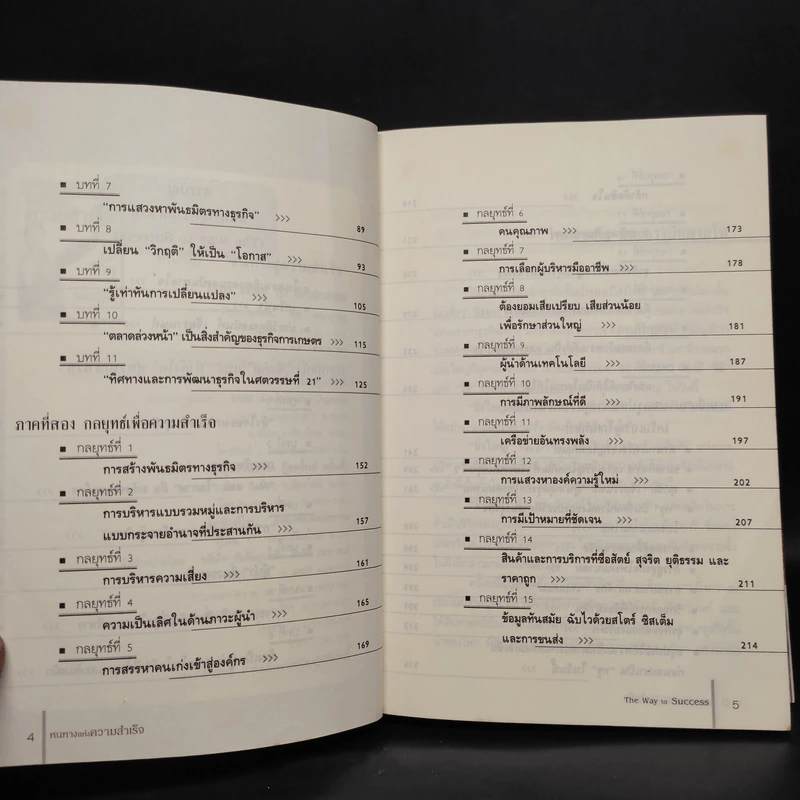 ■ บทที่ 7
“การแสวงหาพันธมิตรทางธุรกิจ” >>> 89
■ บทที่ 8
เปลี่ยน “วิกฤติ” ให้เป็น “โอกาส” >>> 93
■ บทที่ 9
“รู้เท่าทันการเปลี่ยนแปลง” >>> 105
■ บทที่ 10
“ตลาดล่วงหน้า” เป็นสิ่งสำคัญของธุรกิจการเกษตร >>> 115
■ บทที่ 11
“ทิศทางและการพัฒนาธุรกิจในศตวรรษที่ 21” >>> 125
ภาคที่สอง กลยุทธ์เพื่อความสำเร็จ
■ กลยุทธ์ที่ 1
การสร้างพันธมิตรทางธุรกิจ >>> 152
■ กลยุทธ์ที่ 2
การบริหารแบบรวมหมู่และการบริหาร
แบบกระจายอำนาจที่ประสานกัน >>> 157
■ กลยุทธ์ที่ 3
การบริหารความเสี่ยง >>> 161
■ กลยุทธ์ที่ 4
ความเป็นเลิศในด้านภาวะผู้นำ >>> 165
■ กลยุทธ์ที่ 5
การสรรหาคนเก่งเข้าสู่องค์กร >>> 169
4 หนทางแห่งความสำเร็จ
■ กลยุทธ์ที่ 6
คนคุณภาพ >>> 173
■ กลยุทธ์ที่ 7
การเลือกผู้บริหารมืออาชีพ >>> 178
■ กลยุทธ์ที่ 8
ต้องยอมเสียเปรียบ เสียส่วนน้อย
เพื่อรักษาส่วนใหญ่ >>> 181
■ กลยุทธ์ที่ 9
ผู้นำด้านเทคโนโลยี >>> 187
■ กลยุทธ์ที่ 10
การมีภาพลักษณ์ที่ดี >>> 191
■ กลยุทธ์ที่ 11
เครือข่ายอันทรงพลัง >>> 197
■ กลยุทธ์ที่ 12
การแสวงหาองค์ความรู้ใหม่ >>> 202
■ กลยุทธ์ที่ 13
การมีเป้าหมายที่ชัดเจน >>> 207
■ กลยุทธ์ที่ 14
สินค้าและการบริการที่ซื่อสัตย์ สุจริต ยุติธรรม และ
ราคาถูก >>> 211
■ กลยุทธ์ที่ 15
ข้อมูลทันสมัย ฉับไวด้วยสโตร์ ซิสเต็ม
และการขนส่ง >>> 214
The Way to Success 5